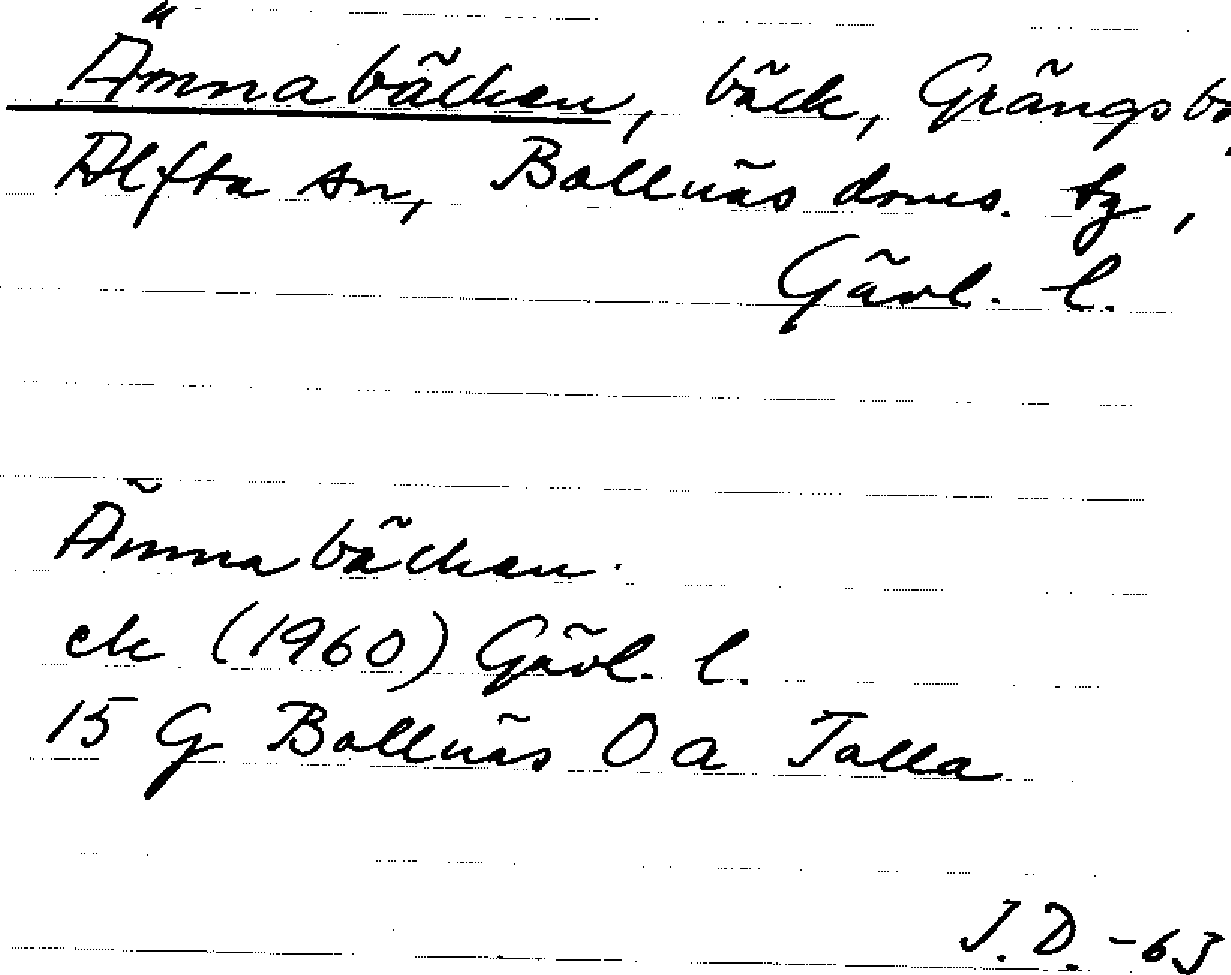 Ämnabäcken, bäck, Grängsbo
Alfta sn, Bollnäs doms. tg,
Gävl. l.
Ämnabäcken.
ek (1960) Gävl. l.
15 G Bollnäs 0 a Talla
J.D.